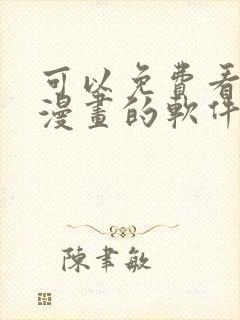 可以免費看
漫畫的軟件
陳聿敏